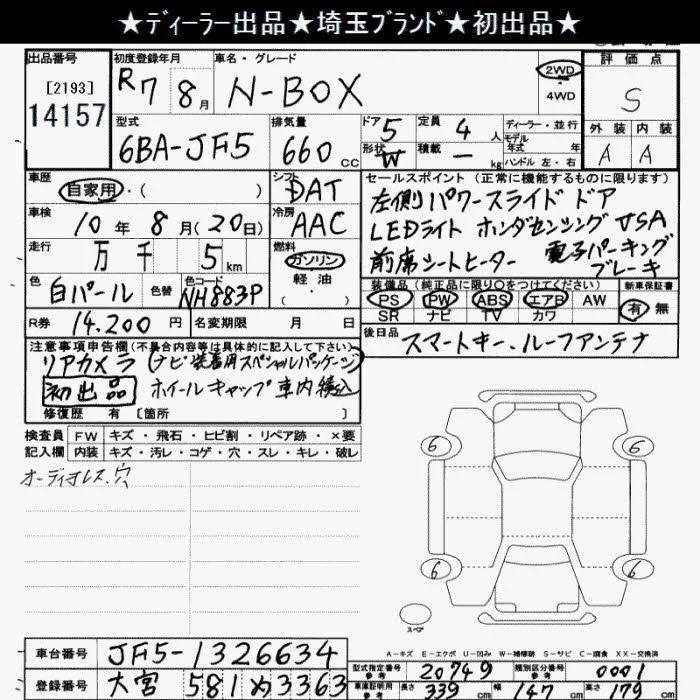 ★ディーラー出品★埼玉ブランド★初出品★
出品番号
[2193]
14157
初度登録年月
R7 8月
車名・グレード
N-BOX
2WD
・
4WD
評価点
S
外装 内装
A A
型式
6BA-JF5
排気量
660 CC
ドア 5
形状 W
定員 4 人
積載 — kg
ディーラー・並行
モデル
年式 年
ハンドル 左・右
車歴
自家用・( )
シフト
DAT
車検
10年8月(20日)
冷房
AAC
走行
万 千 5 km
燃料
ガソリン
・
軽油
・( )
色
白パール
色替
色コード
NH883P
セールスポイント(正常に機能するものに限ります)
左側パワースライドドア
LEDライト ホンダセンシング USA
前席シートヒーター 電子パーキング
ブレーキ
装備品(純正品に限り○をつけてください)
PS PW ABS エアB AW
SR ナビ TV カワ
新車保証書
有・無
R券 14.200 円
名変期限 月 日
後日品
スマートキー、ルーフアンテナ
注意事項申告欄(不具合内容等は具体的に記入して下さい)
リアカメラ(ナビ装着用スペシャルパッケージ)
初出品 ホイールキャップ車内積込
修復歴 有 [箇所 ]
検査員
記入欄
FW キズ・飛石・ヒビ割・リペア跡・×要
内装 キズ・汚レ・コゲ・穴・スレ・キレ・破レ
オーディオレス、穴
6 6
6 6
スペア
A-キズ E-エクボ U-凹み W-補修跡 S-サビ C-腐食 XX-交換済
車台番号 JF5-1326634
登録番号 大宮 581 め 3363
型式指定番号
参考
20749
類別区分番号
参考
0001
車庫証明用
参考
長さ 339 cm 幅 147 cm 高さ 179 cm